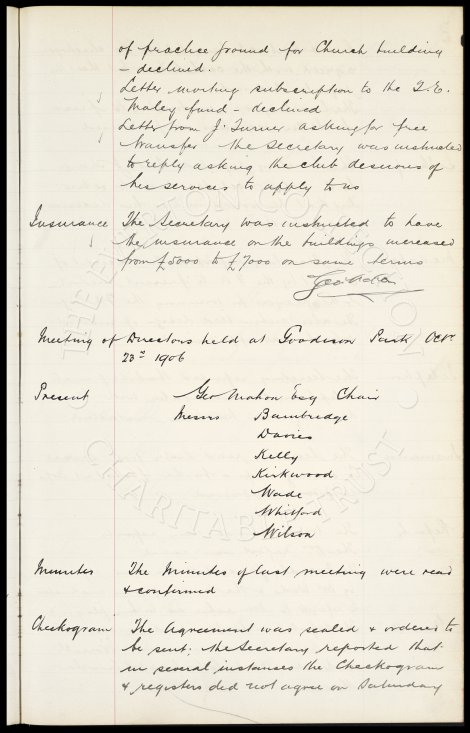 of practice ground for Church building
- declined.
Letter inviting subscription to the T. E.
Maley fund - declined
Letter from J. Turner asking for free
transfer the Secretary was instructed
to reply asking the club desirous of
his services to apply to us
Insurance The Secretary was instructed to have
the insurance on the buildings increased
from £5000 to £7000 on same terms
Geo Mahon
Meeting of Directors held at Goodison Park Octr
23rd 1906
Present Geo Mahon Esq Chair
Messrs Bainbridge
Davies
Kelly
Kirkwood
Wade
Whitford
Wilson
Minutes The Minutes of last meeting were read
& confirmed
Checkogram The Agreement was sealed & ordered to
be sent; the Secretary reported that
in several instances the Checkogram
& registers did not agree on Saturday
THE EVERTON COLLECTION
CHARITABLE TRUST